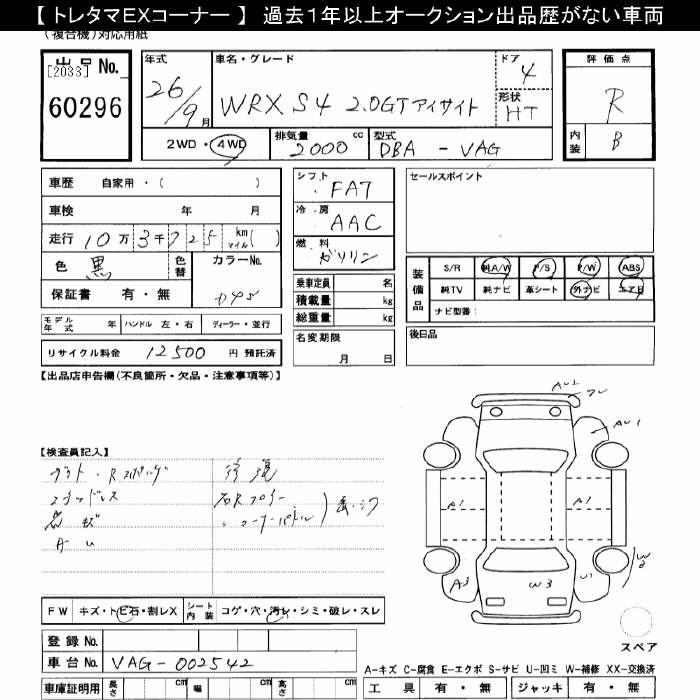 【 トレタマEXコーナー 】 過去1年以上オークション出品歴がない車両
(複合機)対応用紙
出品 No.
[2033]
60296
年式
26/9月
車名・グレード
WRX S4 2.0GTアイサイト
ドア
4
形状
HT
評価点
R
内装
B
2WD・4WD
排気量
2000 cc
型式
DBA - VAG
車歴 自家用・( )
車検 年 月
走行 10万3千725 km マイル( )
色 黒
色替
カラーNo.
D4S
保証書 有・無
モデル年式 年
ハンドル 左・右
ディーラー・並行
リサイクル料金 12500 円 預託済
シフト
FA7
冷房
AAC
燃料
ガソリン
乗車定員 名
積載量 kg
総重量 kg
名変期限
月 日
セールスポイント
装備品
S/R 純A/W P/S P/W ABS
純TV 純ナビ 革シート 外ナビ エアB
ナビ型番:
後日品
【出品店申告欄(不良箇所・欠品・注意事項等)】
【検査員記入】
A-U
修復
コーナーパネル
AU1
A1
A1
A3
W3
U1
W2
FW キズ・トビ石・割レX
シート内装 コゲ・穴・汚レ・シミ・破レ・スレ
登録 No.
車台 No. VAG-002542
車庫証明用 長さ cm 幅 cm 高さ cm
スペア
A-キズ C-腐食 E-エクボ S-サビ U-凹ミ W-補修 XX-交換済
工具 有・無 ジャッキ 有・無